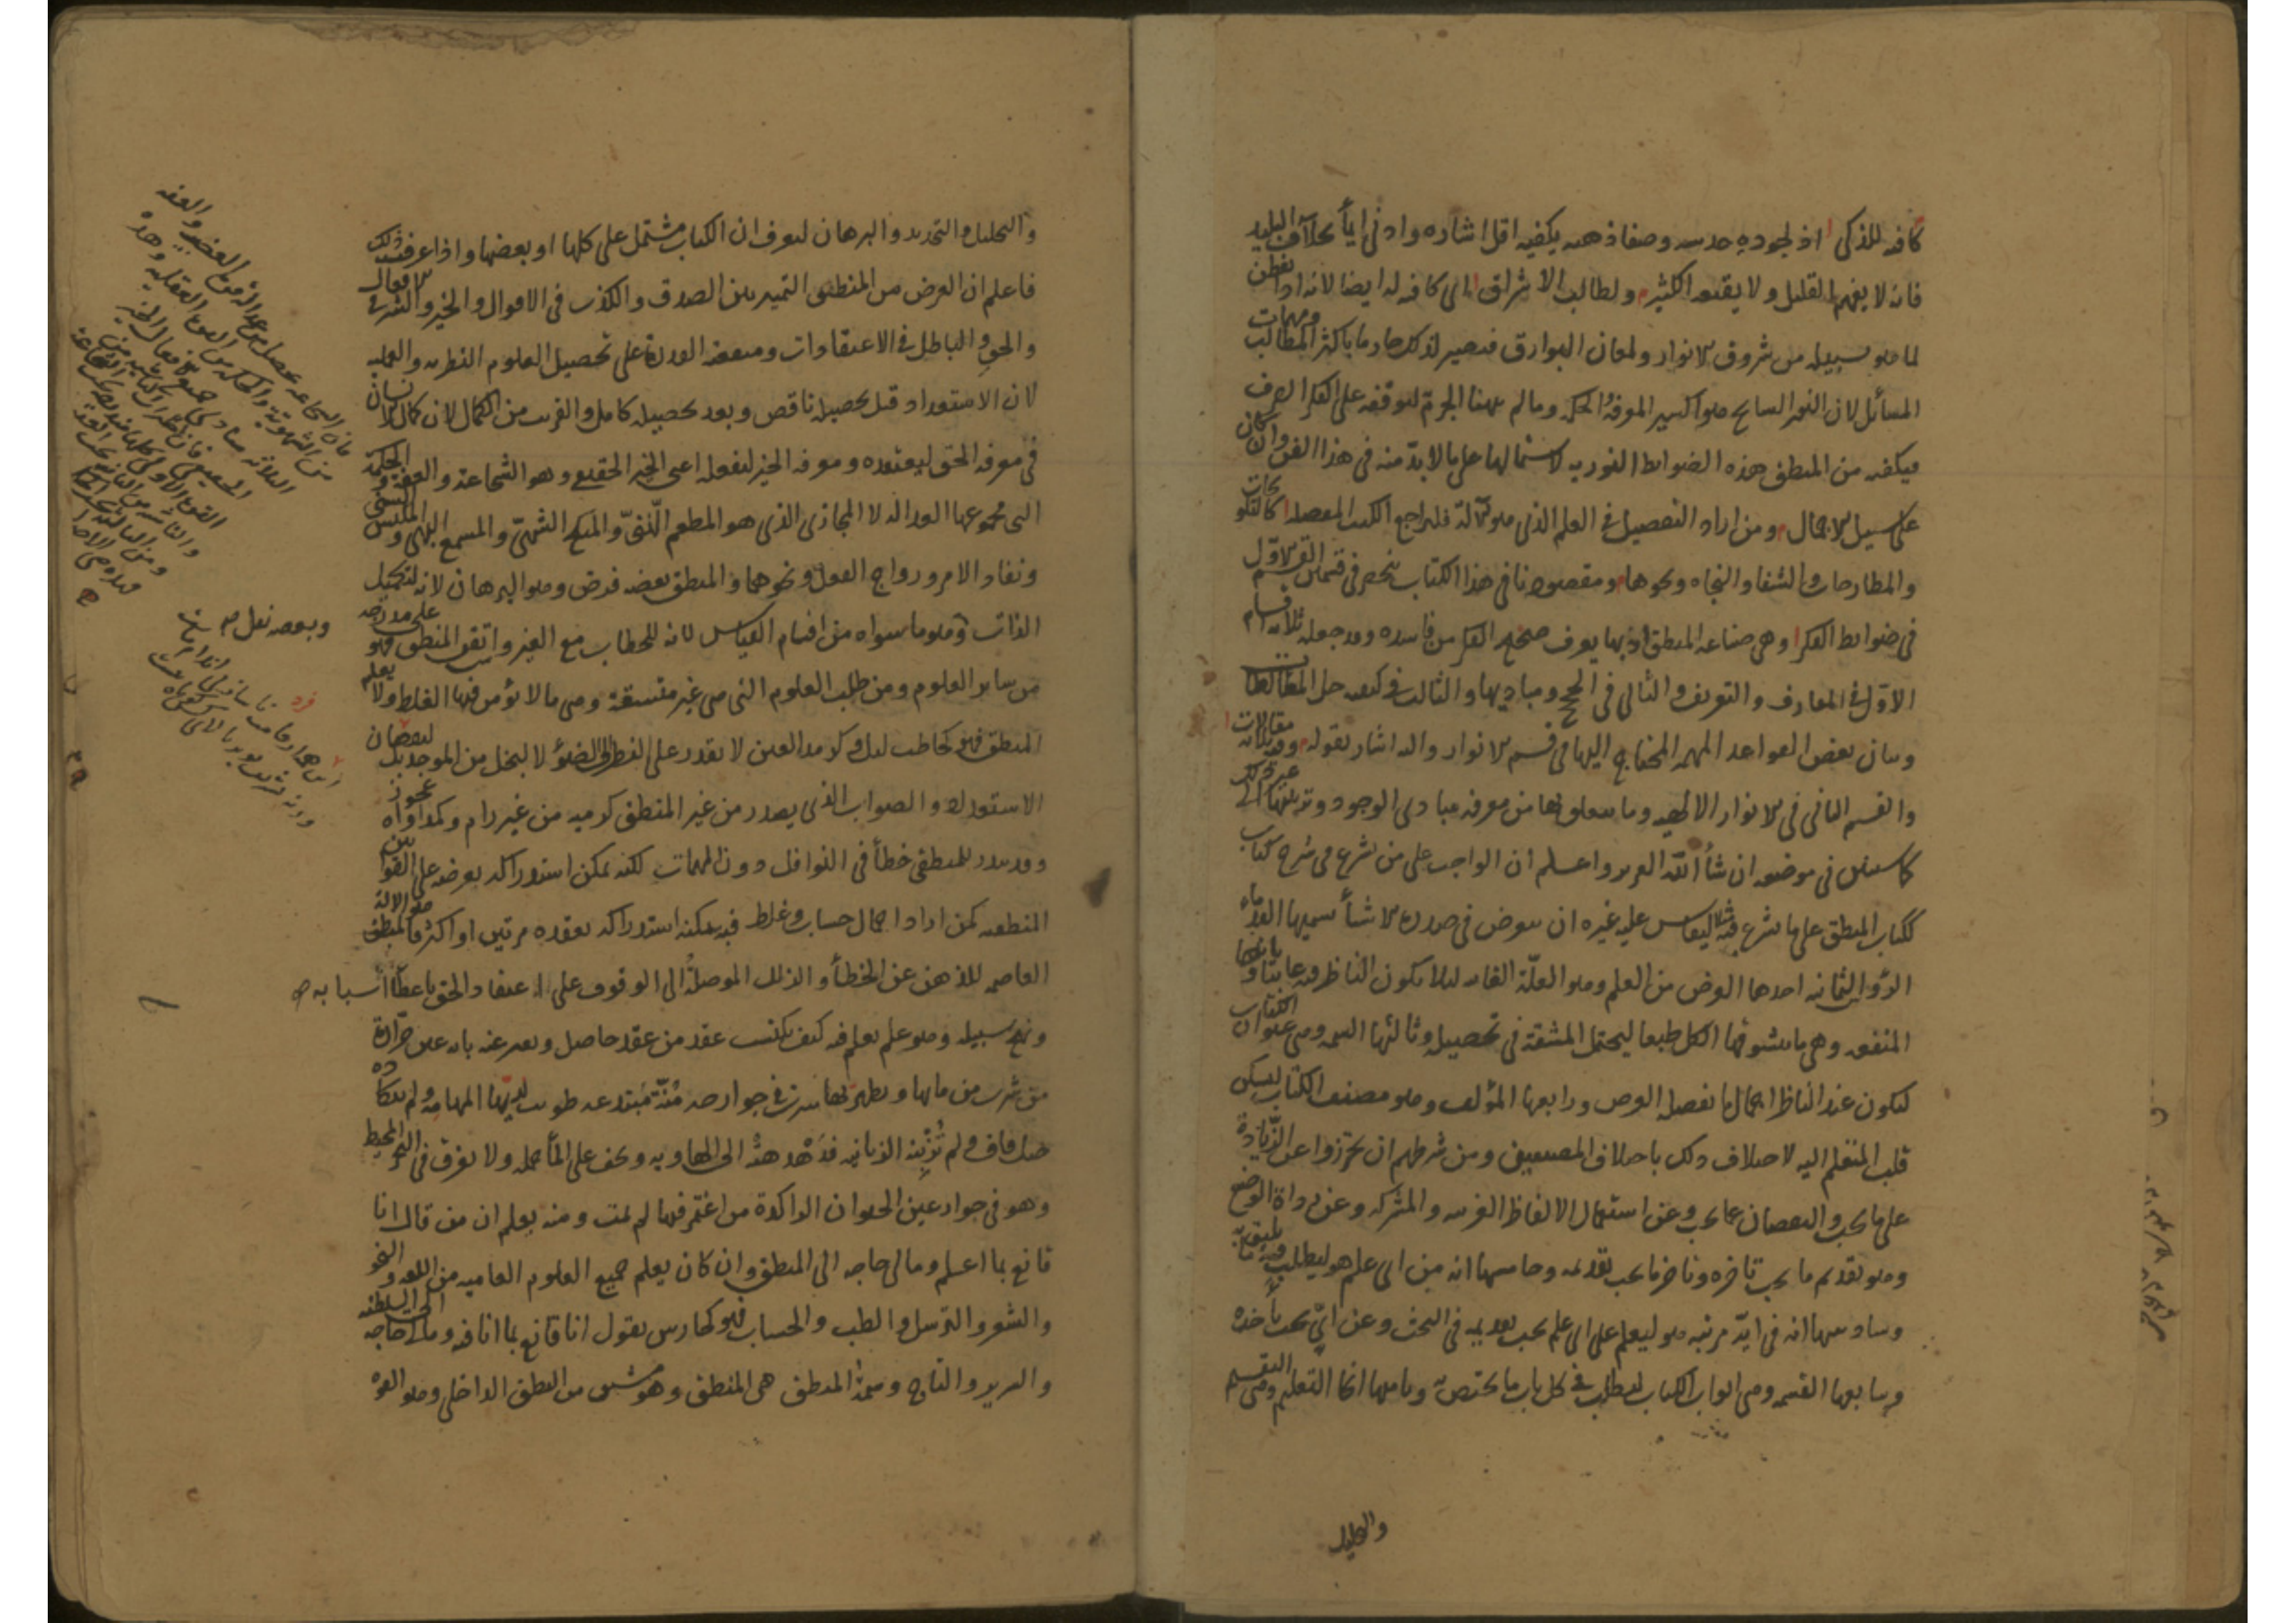 كافية للذكى اذ لجودة حدسه وصفا ذهنه يكفيه اقل اشاره وادنى ايمأ بخلاف البليد
فانه لا يفهم القليل ولا يقنعه الكثير ولطالب الاشراق اى كافية له ايضا لانه اذا تفطن
لما هو سبيله من شروق الانوار ولمعان البوارق فيصير لذلك صارما باكثر المطالب ومهمات
المسائل لان النور السانح هو اكسير المعرفة والحكمة وما لم يهيأ الجرم لتوقفه على الفكر الصرف
فيكفيه من المنطق هذه الضوابط النورية لاشتمالها على ما لابدّ منه فى هذا الفن وان كان
على سبيل الاجمال ومن اراد التفصيل فى العلم الذى هو الآلة فليراجع الكتب المفصلة كالتلويحات
والمطارحات والشفا والنجاه ونحوها ومقصودنا فى هذا الكتاب ينحصر فى قسمين القسم الاوّل
فى ضوابط الفكر وهى صناعة المنطق اذ بها يعرف صحيح الفكر من فاسده وقد جعله ثلاثة اقسام
الاوّل فى المعارف والتعريف والثانى فى الحجج ومباديها والثالث فى كيفيه حل المغالطات
وبيان بعض القواعد المهمه المحتاج اليها فى قسم الانوار واليه اشار بقوله وفيه ثلاثة مقالات
والقسم الثانى فى الانوار الالهيه وما يتعلق بها من معرفة مبادى الوجود وترتيبها الى غير ذلك
كما ستبين فى موضعه ان شأ الله العزيز واعلم ان الواجب على من شرع فى شرح كتاب
ككتاب المنطق على ما شرع فيه ليقاس عليه غيره ان يتعرض فى صدره لاشيأ يسميها القدماء
الرؤس الثمانيه احدها الغرض من العلم وهو العلّة الغائية لئلا يكون الناظر فيه عابثا وثانيها
المنفعه وهى ما يتشوقها الكل طبعا ليحتمل المشقة فى تحصيله وثالثها السمه وهى عنوان الكتاب
ليكون عند الناظر اجمال ما يفصله الغرض ورابعها المؤلف وهو مصنف الكتاب ليسكن
قلب المتعلم اليه لاختلاف ذلك باختلاف المصنفين ومن شرطهم ان يحترزوا عن الزّيادة
على ما يجب والنقصان عما يجب وعن استعمال الالفاظ الغريبه والمشتركة وعن رداة الوضع
وهو تقديم ما يجب تاخره وتاخر ما يجب تقديمه وخامسها انه من اى علم هو ليطلب فيه ما يليق به
وسادسها انه فى ايّة مرتبه هو ليعلم على اى علم يجب تقديمه فى البحث وعن ايّ يجب تأخره
وسابعها القسمه وهى ابواب الكتاب ليطلب فى كل باب ما يختص به وثامنها انحا التعليم وهى التقسيم
والتحليل
والتحليل والتحديد والبرهان ليعرف ان الكتاب مشتمل على كلها او بعضها واذا عرفت ذلك
فاعلم ان الغرض من المنطق التمييز بين الصدق والكذب فى الاقوال والخير والشر فى الافعال
والحق والباطل فى الاعتقادات ومنفعته القدرة على تحصيل العلوم النظريه والعمليه
لان الاستعداد قبل تحصيله ناقص وبعد تحصيله كامل والقرب من الكمال لان كمال الانسان
فى معرفه الحق ليعتقده ومعرفه الخير ليفعله اعنى الخير الحقيقى وهو الشجاعة والعفة والحكمة
التى مجموعها العدالة لا المجازى الذى هو المطعم الهنىّ والمنكح الشهىّ والمسمع البهى والملبس السنى
ونفاد الامر ورواج القول ونحوهما والمنطق بعضه فرض وهو البرهان لانه لتكميل
الذات وهو ما سواه من اقسام القياس لانه للخطاب مع الغير ومن اتقن المنطق فهو على مدرجة
من ساير العلوم ومن طلب العلوم التى هى غير متسقة وهى ما لا يؤمن فيها الغلط ولا يعلم
المنطق فهو كحاطب ليل وكرمد العين لا يقدر على النظر الى الضوء لا لبخل من الموجد بل لنقصان
الاستعداد والصواب الذى يصدر من غير المنطقى كرميه من غير رام وكمداواة عجوز
وقد يندر للمنطقى خطأ فى النوافل دون المهمات لكنه يمكن استدراكه بعرضه على القوانين
المنطقيه كمن اراد اجمال حساب وغلط فيه يمكنه استدراكه بعقده مرتين او اكثر فالمنطق هو الالة
العاصمه للذهن عن الخطأ والزلل الموصلةُ الى الوقوف على الاعتقاد الحق باعطاأ اسبابه
ونهج سبيله وهو علم يعلم فيه كيف يكتسب عقد من عقد حاصل ويعبر عنه بانه عين خرّارة
من شرب من مايها وتطهر بها سرت فى جوارحه مُنّة مبتدعه طويت لديها المهامه ولم يتكاده
جبل قاف ولم تُزبِنه الزبانيه فدَهْدهتْه الى الهاويه ويخف على المأ حمله ولا يغرق فى البحر المحيط
وهو فى جوار عين الحيوان الراكدة من اغتمر فيها لم يمت ومنه يعلم ان من قال انا
قانع بما اعلم ومالى حاجه الى المنطق وان كان يعلم جميع العلوم العاميه من اللغه والنحو
والشعر والترسل والطب والحساب فهو كحارس يقول انا قانع بما انا فيه ومالى حاجه الى السلطنه
والسرير والتاج وسمة المنطق هى المنطق وهو مشتق من النطق الداخلى وهو القوه